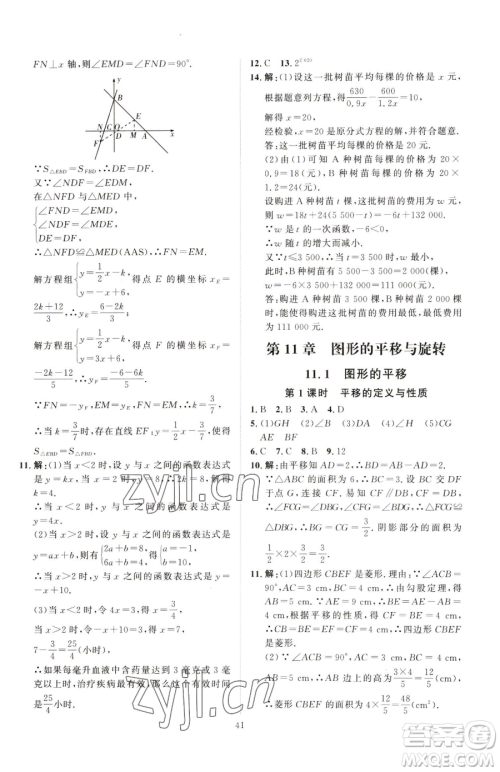 FN⊥x 轴,则∠EMD=∠FND=90°.
y
B
E
N C O
D M A x
F
∵S△EBD=S△FBD,∴DE=DF.
又∵∠NDF=∠EDM,
在△NFD与△MED中,
{∠FND=∠EMD
∠NDF=∠EDM,
DF=DE
∴△NFD≌△MED(AAS),∴FN=EM.
解方程组{y=1/2x-k, y=-x+6 得点 E 的横坐标 xE=
2k+12/3,∴yE=6-2k/3.
解方程组{y=1/2x-k, y=3x+6 得点 F 的横坐标 xF=
-2k-12/5,∴yF=-6-6k/5.
∵FN=EM,∴6-2k/3=6+6k/5,∴k=
3/7,∴存在直线 EF:y=1/2x-3/7,使得
S△EBD=S△FBD.
11.解:(1)当 x<2 时,设 y 与 x 之间的函数表达式
是 y=kx,当 x=2 时,y=8,∴2k=8,解得 k=4,
∴当 x<2 时,y 与 x 之间的函数表达式是
y=4x.
当 x>2 时,设 y 与 x 之间的函数表达式是
y=ax+b,∴{2a+b=8, 6a+b=5,解得
∴当 x>2 时,y 与 x 之间的函数表达式是
(2)当 x<2 时,令 4x=3,得 x=3/4,
7-3/4=25/4(小时).
∴如果每毫升血液中含药量达到 3 毫克或 3 毫
克以上时,治疗疾病有效,那么这个有效时间是
25/4小时.
12.C 13.2^2 020
14.解:(1)设这一批树苗平均每棵的价格是 x 元,
根据题意列方程,得630/0.9x-600/1.2x=10,
解得 x=20.
经检验,x=20是原分式方程的解,并符合题意.
答:这一批树苗平均每棵的价格是 20 元.
(2)由(1)可知 A 种树苗每棵的价格为 20×
0.9=18(元),B 种树苗每棵的价格为 20×
1.2=24(元).
设购进 A 种树苗 t 棵,这批树苗的费用为 w 元,
则 w=18t+24(5 500-t)=-6t+132 000.
∵w 是 t 的一次函数,-6<0,
∴w 随 t 的增大而减小.
又∵t≤3 500,∴当 t=3 500 时,w 最小.
此时,B 种树苗有 5 500-3 500=2 000(棵),
w=-6×3 500+132 000=111 000.
答:购进 A 种树苗 3 500 棵,B 种树苗
2 000棵时,能使得购进这批树苗的费用最低,最低费用为
111 000 元.
第 11 章 图形的平移与旋转
11.1 图形的平移
第 1 课时 平移的定义与性质
1.B 2.B 3.A 4.D
5.(1)GH (2)∥ (3)DH (4)∥ (5)CG
AE BF
6.C 7.C 8.B 9.12
10.解:由平移知 AD=2,∴BD=AB-AD=2.
∵△ABC 的面积为 6,∴BC=3,设 BC 交 DF
于点 G,∵DG∥AC,∴∠C=∠DGB.∵∠F=∠C,
∴∠FCG=∠DBG,∴△FCG≌
△DBG,∴BG=CG=3/2,阴影部分的面积为
1/2×2×3/2=3/2.
11.解:(1)四边形 CBEF 是菱形.理由:∵∠ACB=
90°,AC=3 cm,BC=4 cm,∴由勾股定理,得
AB=5 cm.∵AE=9 cm,∴BE=AE-AB=4
cm.根据平移的性质,得 CF=BE=4 cm,
∴CB=BE=EF=CF=4 cm,∴四边形
CBEF 是菱形.
(2)∵∠ACB=90°,AC=3 cm,BC=4 cm,
AB=5 cm,∴AB 边上的高为3×4/5=12/5(cm).
∴菱形 CBEF 的面积为 4×12/5=48/5(cm²).
41
zyjl.cn
答案圈